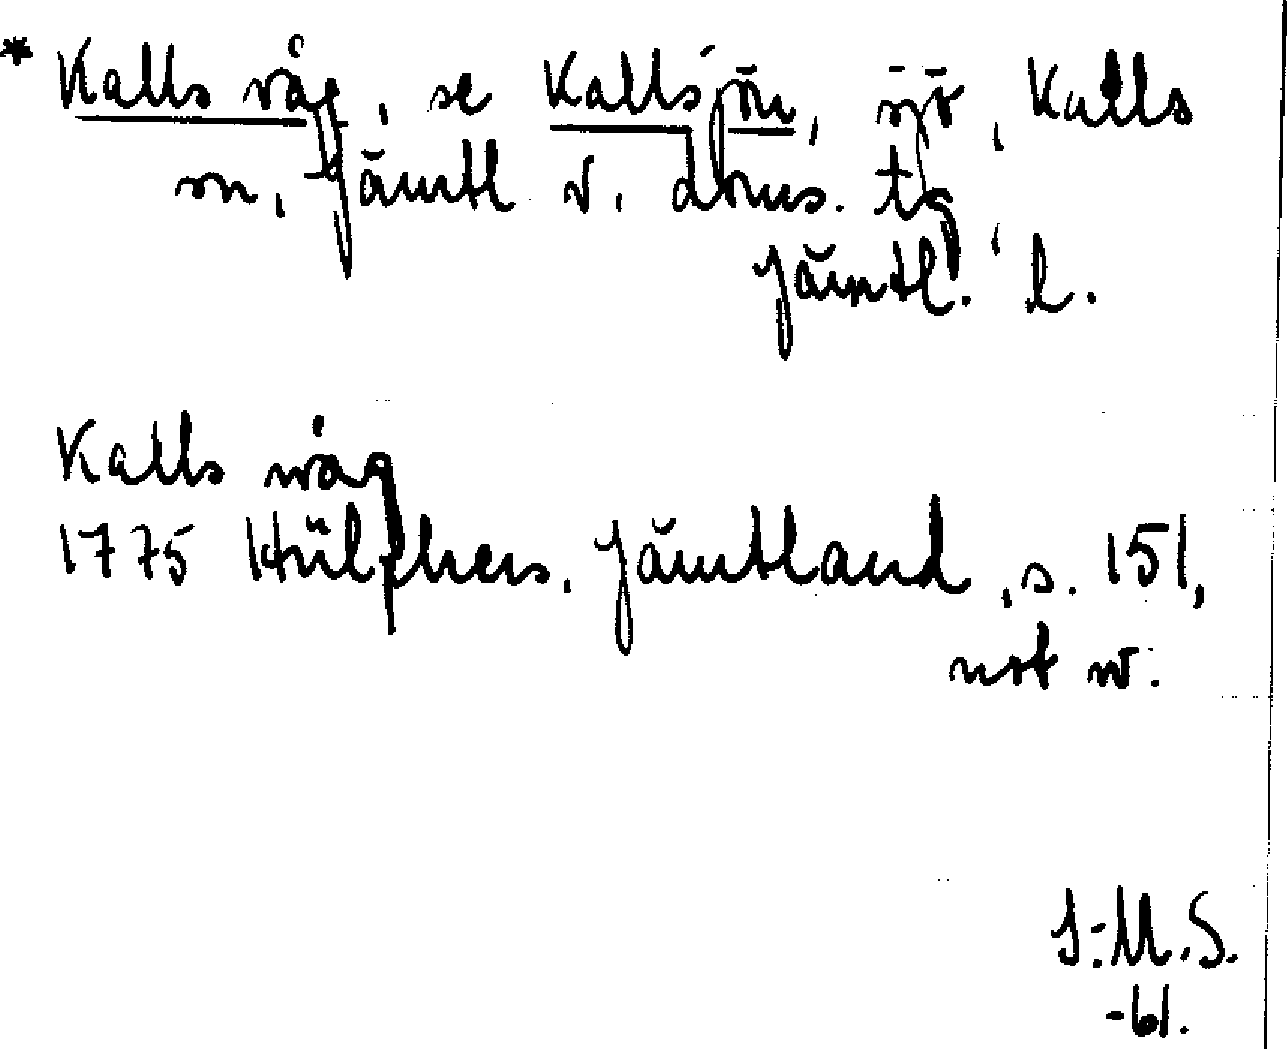 * Kalls våg, se Kallsjön, sjö, Kalls
sn, Jämtl v. doms. tg
Jämtl. l.
Kalls wåg
1775 Hülphers, Jämtland, s. 151,
not w.
I:M.S.
-61.